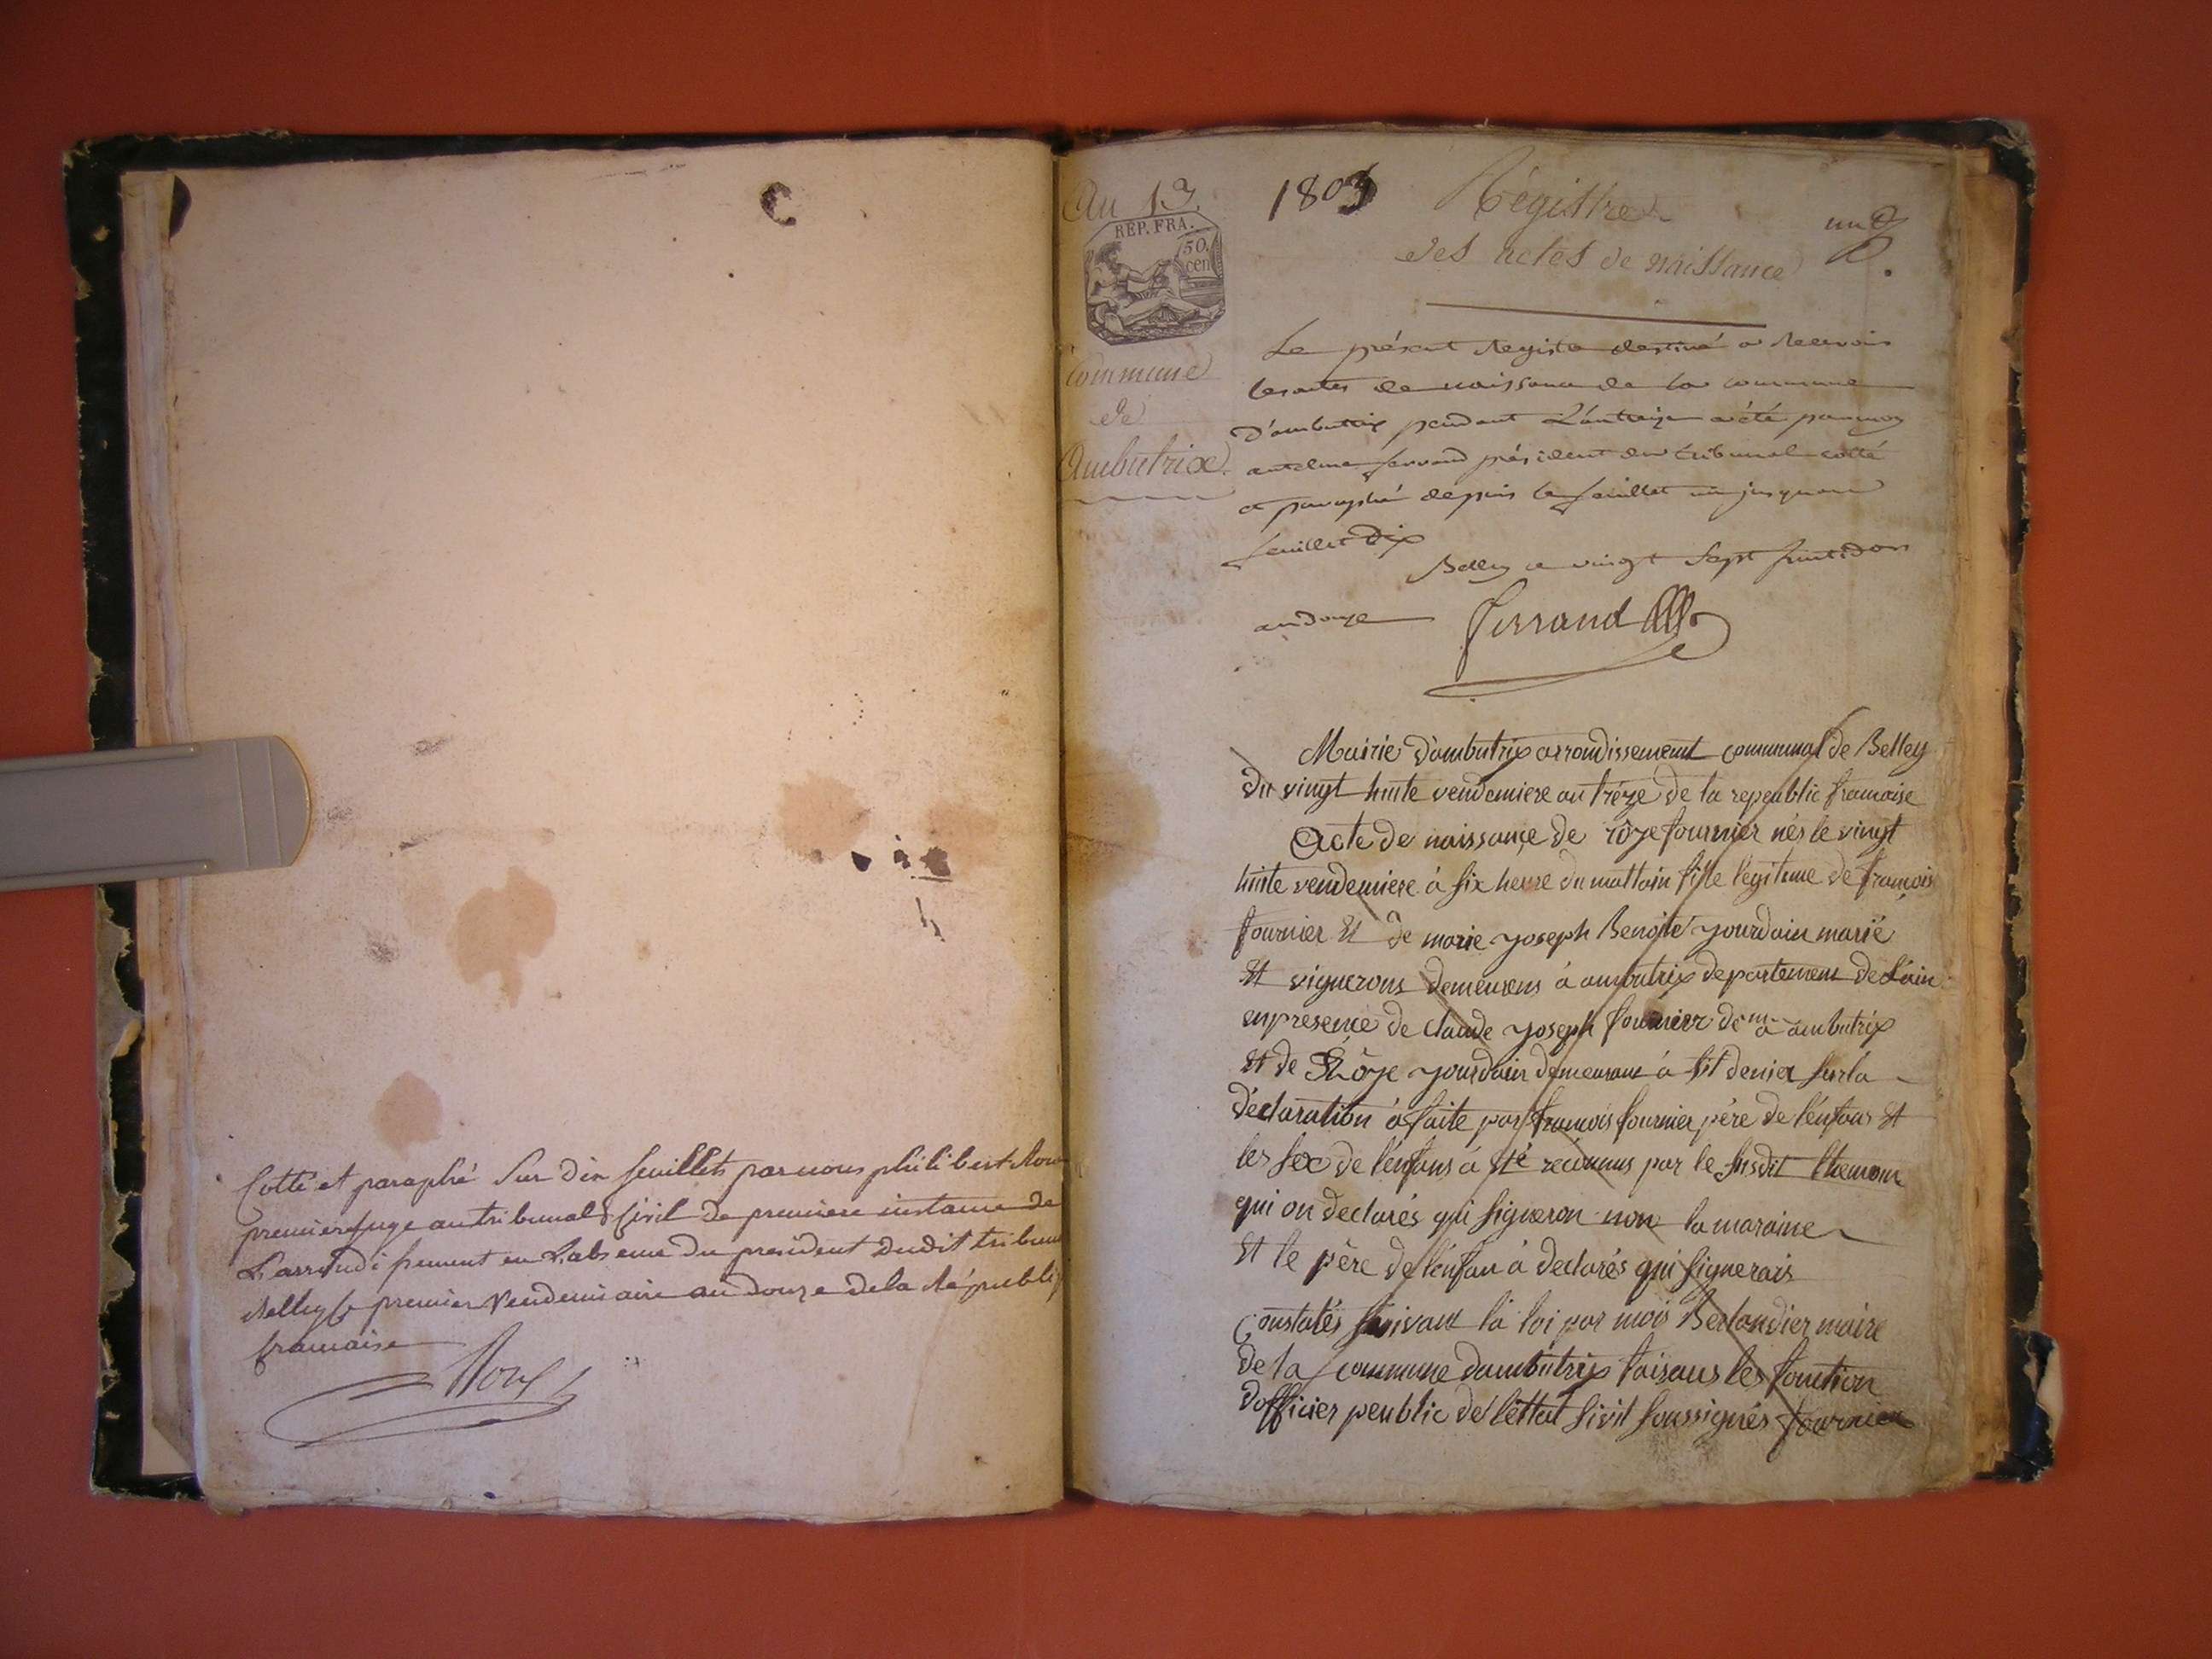 Cotté et paraphé Sur dix feuillets par nous philibert
premier juge au tribunal Civil de premiere instance de
L'arrondissement en L'absence du president Dudit tribunal
Belley le premier Vendemiaire an douze de la Républi
francaise
An 13.
1803
Régistre
des actes de naissance
un
REP. FRA.
50.
cen
Commune
de
Ambutrix.
Le présent Registre destiné a Recevoir
les actes de naissance de la commune
D'ambutrix pendant L'an treize a été par moy
antelme ferrand président du tribunal cotté
et paraphé depuis le feuillet un jusquau
feuillet Dix
Belley ce vingt Sept fructidor
an douze
ferrand
Mairie d'ambutrix arrondissement communal de Belley
du vingt huite vendemiere an tréze de la republic francaise
Acte de naissance de rôze fournier nés le vingt
huite vendemiere à six heure du mattain fille légitime de françois
fournier Et de marie yoseph Benoîte yourdain marié
Et vignerons demeurens à ambutrix departement de L'ain
en presence de claude yoseph fournier dem à ambutrix
Et de Rôze yourdain demeurant à St denier sur la
déclaration à faite par francois fournier pére de l'énfans Et
les sex de l'énfans à Eté reconnus par le susdit
qui on declarés qui signeron non la maraine
Et le pére de l'énfan à declarés qui signerais
Constatés suivant la loi par mois Berlandier maire
de la commune dambutrix faisans les fonction
d'officier peublic de l'éttat sivil soussignés fournier